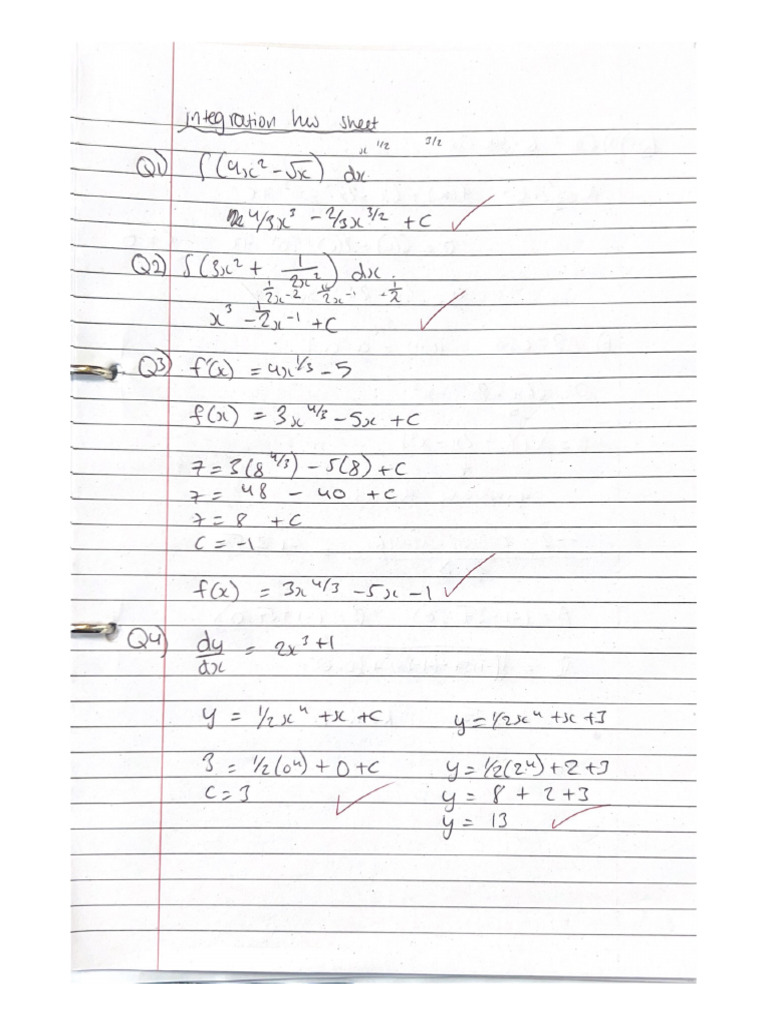 integration hw sheet
x^1/2 3/2
Q1) ∫(4x² - √x) dx
4/3x³ - 2/3x^3/2 + C
Q2) ∫(3x² + 1/2x²) dx.
1/2x^-2 1/2x^-1 -1/2
x³ - 1/2x^-1 + C
Q3) f'(x) = 4x^1/3 - 5
f(x) = 3x^4/3 - 5x + C
7 = 3(8^4/3) - 5(8) + C
7 = 48 - 40 + C
7 = 8 + C
C = -1
f(x) = 3x^4/3 - 5x - 1
Q4) dy/dx = 2x³ + 1
y = 1/2x⁴ + x + C
3 = 1/2(0⁴) + 0 + C
C = 3
y = 1/2x⁴ + x + 3
y = 1/2(2⁴) + 2 + 3
y = 8 + 2 + 3
y = 13